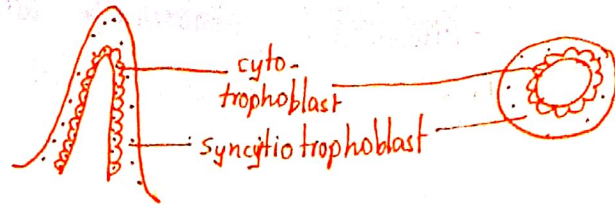 cyto-
trophoblast
syncytiotrophoblast